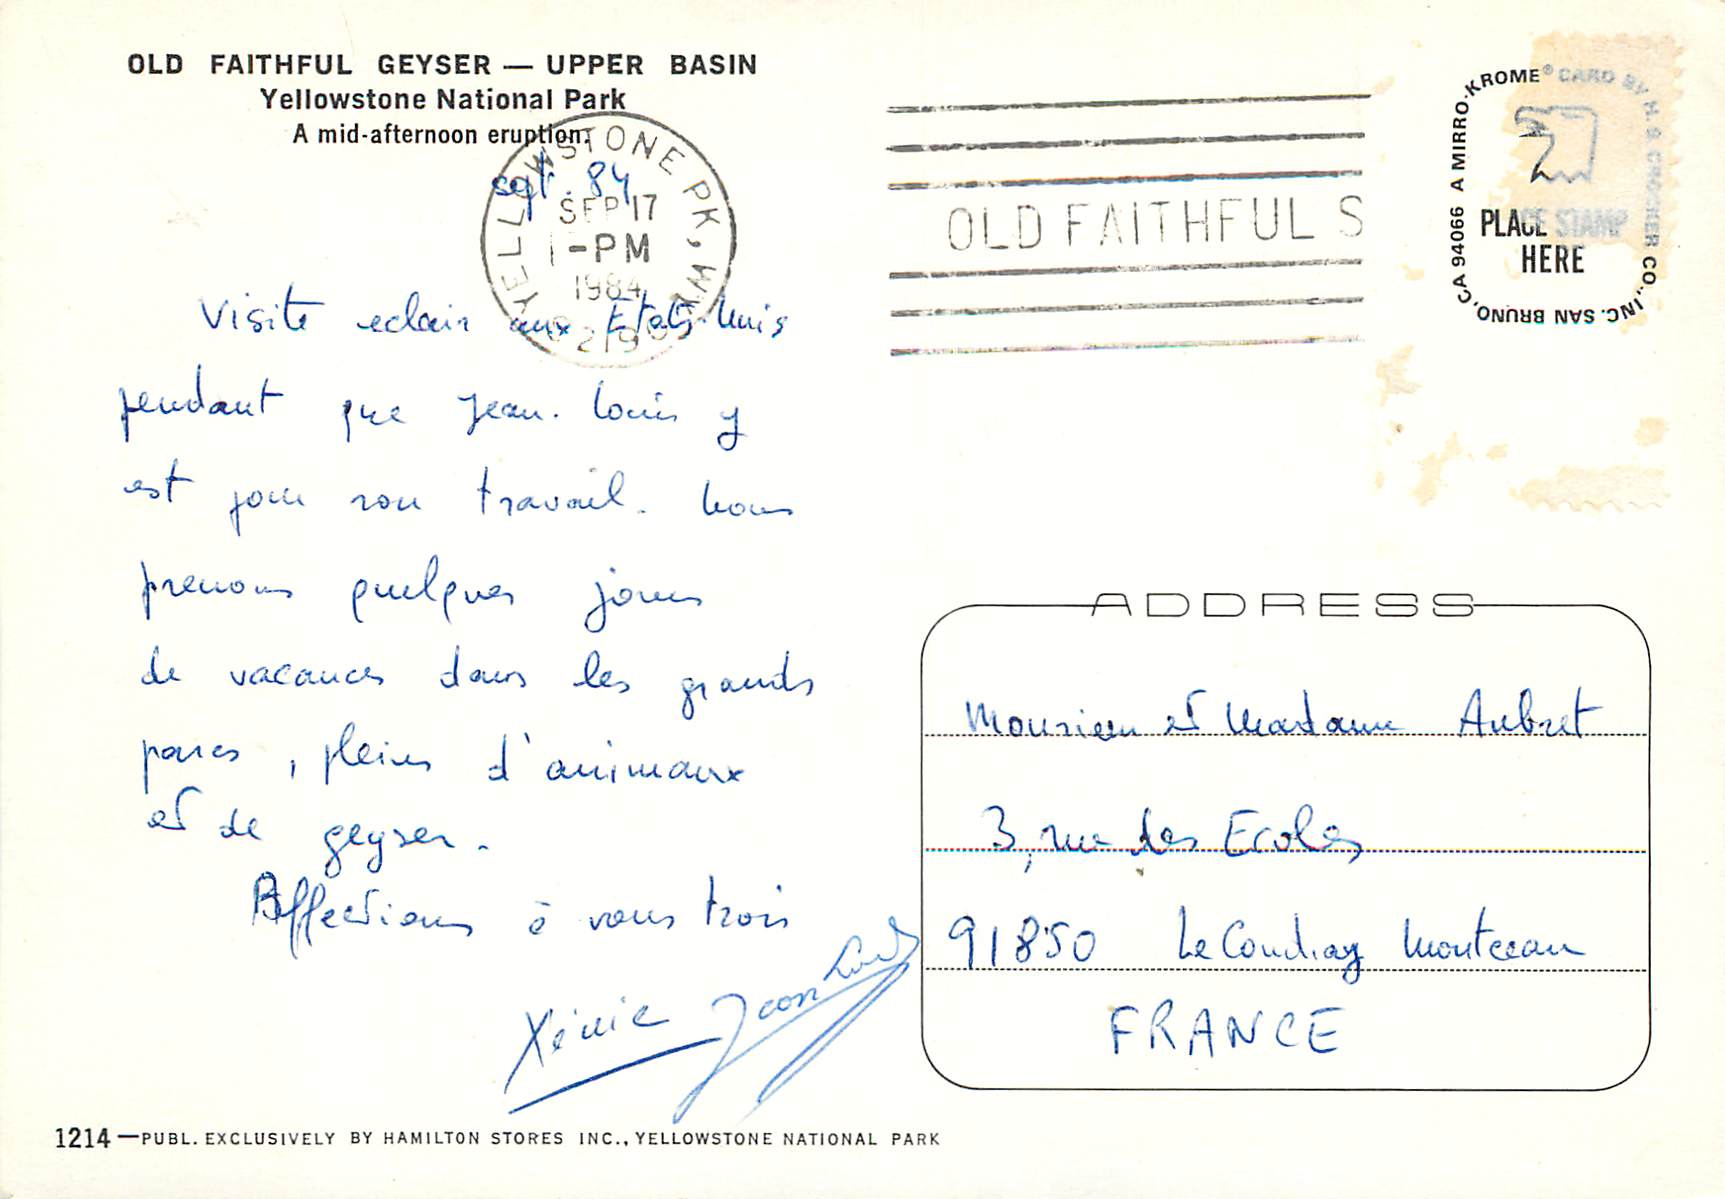 OLD FAITHFUL GEYSER — UPPER BASIN
Yellowstone National Park
A mid-afternoon eruption.
sept. 84
YELLOWSTONE PK, WY
SEP 17
-PM
1984
OLD FAITHFUL S
A MIRRO-KROME® CARD BY H. S. CROCKER CO., INC. SAN BRUNO, CA 94066
PLACE STAMP
HERE
Visite eclair aux Etats-Unis
pendant que Jean-Louis y
est pour son travail. Nous
prenons quelques jours
de vacances dans les grands
parcs, pleins d'animaux
et de geyser.
Affections à vous trois
Xénie Jean Louis
ADDRESS
Monsieur et Madame Aubret
3, rue des Ecoles
91850 Le Coudray Montceau
FRANCE
1214—PUBL. EXCLUSIVELY BY HAMILTON STORES INC., YELLOWSTONE NATIONAL PARK